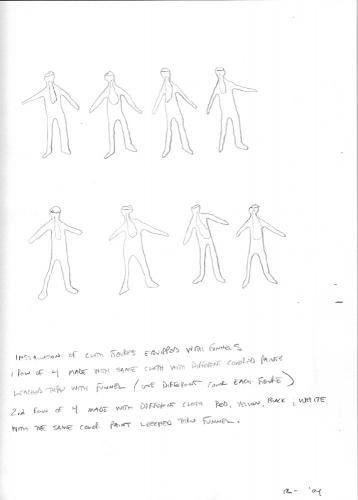 INSTALLATION OF CLOTH FIGURES EQUIPPED WITH FUNNELS
1 ROW OF 4 MADE WITH SAME CLOTH WITH DIFFERENT COLORED PAINTS
LEACHED THRU WITH FUNNEL / (ONE DIFFERENT COLOR EACH FIGURE)
2nd ROW OF 4 MADE WITH DIFFERENT CLOTH RED, YELLOW, BLACK, WHITE
WITH THE SAME COLOR PAINT LEECHED THRU FUNNEL.
'04